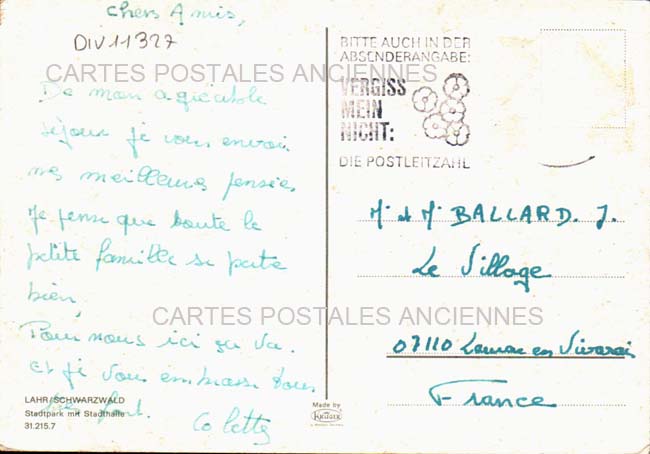 Chers Amis,
DIV11327
CARTES POSTALES ANCIENNES
De mon agréable
séjour je vous envoie
mes meilleures pensées
Je pense que toute la
petite famille se porte
bien,
Pour nous ici ça va.
et je vous embrasse tous
très fort.
Colette
LAHR/SCHWARZWALD
Stadtpark mit Stadthalle
31.215.7
Made by
KRÜGER
BITTE AUCH IN DER
ABSENDERANGABE:
VERGISS
MEIN
NICHT:
DIE POSTLEITZAHL
Mr et Me BALLARD. J.
Le Village
CARTES POSTALES ANCIENNES
07110 en Vivarais
France